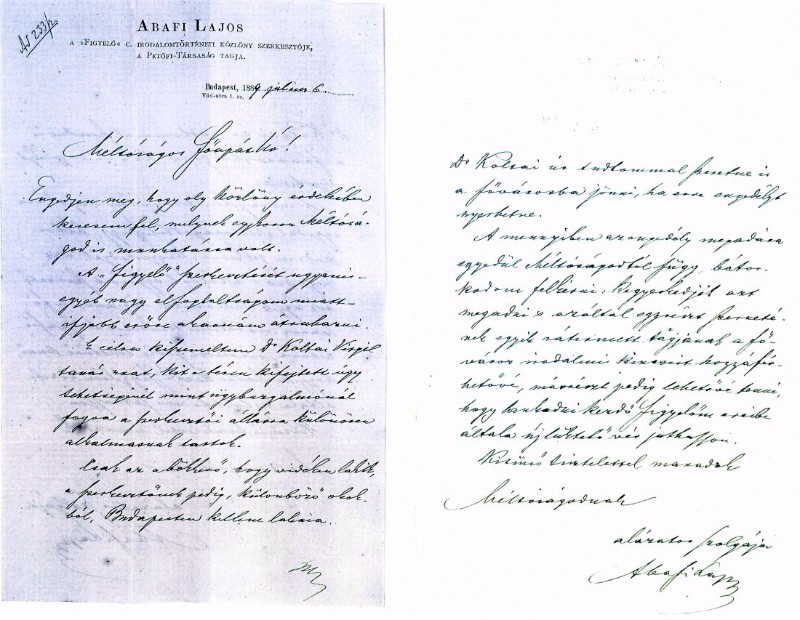 ABAFI LAJOS
A »FIGYELŐ« C. IRODALOMTÖRTÉNETI KÖZLÖNY SZERKESZTŐJE,
A PETŐFI-TÁRSASÁG TAGJA.
Budapest, 1889 július 6.
Méltóságos Főapát Úr!
Engedjen meg, hogy oly közlöny érdekében
keresem fel, melynek egykoron Méltósá-
god is munkatársa volt.
A „Figyelő" szerkesztését ugyanis -
egyéb nagy elfoglaltságom miatt -
ifjabb erőre akarnám átruházni.
E célra kiszemeltem Dr Koltai Virgil
tanár urat, kit a téren kifejtett úgy
tehetségénél mint ügybuzgalmánál
fogva a szerkesztői állásra különösen
alkalmasnak tartok.
Csak az a bökkenő, hogy vidéken lakik,
a szerkesztőnek pedig, különböző okok-
ból, Budapesten kellene laknia.
Dr Koltai úr tudtommal szeretne is
a fővárosba jönni, ha erre engedélyt
nyerhetne.
A mennyiben az engedély megadása
egyedül Méltóságodtól függ, bátor-
kodom felkérni: kegyeskedjék azt
megadni s azáltal egyrészt szerzeté-
nek egyik rátermett tagjának a fő-
város irodalmi kincseit hozzáfér-
hetővé, másrészt pedig lehetővé tenni,
hogy kezdő Figyelőm ereibe
általa új lüktető vér juthasson.
Kitünő tisztelettel maradok
Méltóságodnak
alázatos szolgája
Abafi Lajos